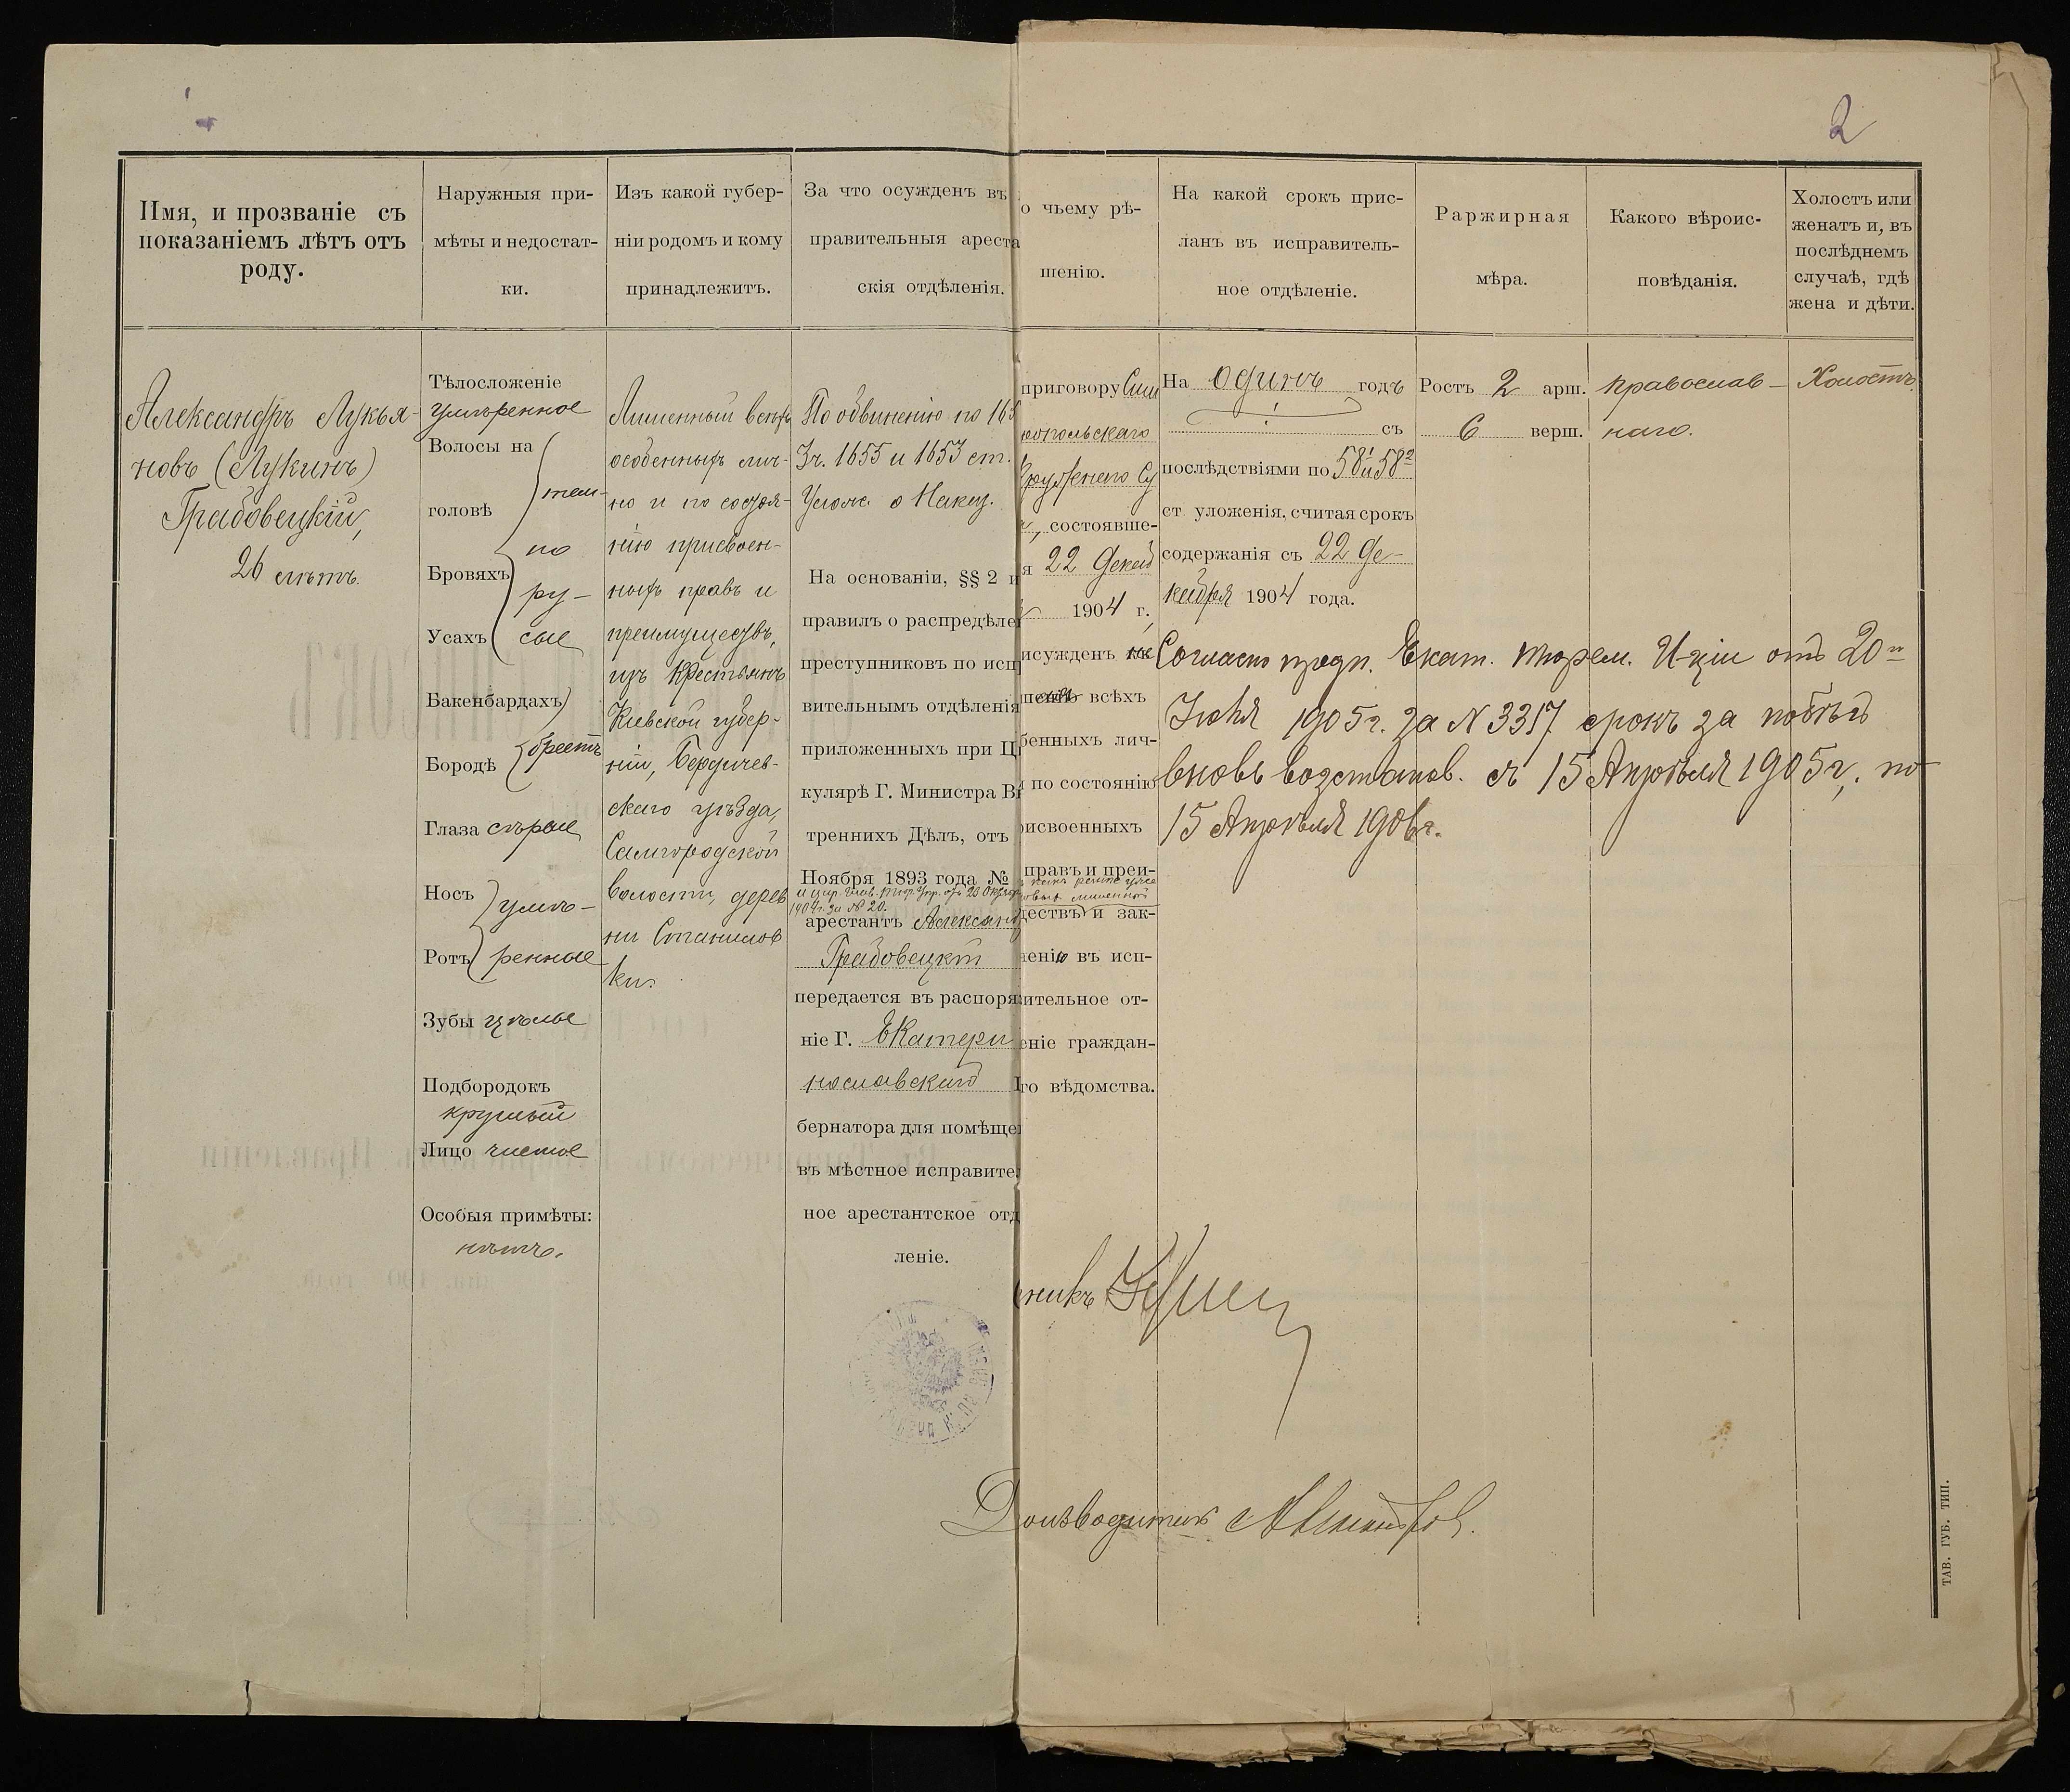 2
Имя, и прозваніе съ
показаніемъ лѣтъ отъ
роду.
Наружныя при-
мѣты и недостат-
ки.
Изъ какой губер-
ніи родомъ и кому
принадлежитъ.
За что осужденъ въ
правительныя ареста
скія отдѣленія.
о чьему рѣ-
шенію.
На какой срокъ прис-
ланъ въ исправитель-
ное отдѣленіе.
Раржирная
мѣра.
Какого вѣроис-
повѣданія.
Холостъ или
женатъ и, въ
послѣднемъ
случаѣ, гдѣ
жена и дѣти.
Александръ Лукья-
новъ (Лукинъ)
Грабовецкій,
26 лѣтъ.
Тѣлосложеніе
умѣренное
Волосы на
головѣ
тем-
но
Бровяхъ
ру-
Усахъ
сые
Бакенбардахъ
Бородѣ
бреетъ
Глаза сѣрые
Носъ
умѣ-
Ротъ
ренные
Зубы цѣлые
Подбородокъ
круглый
Лицо чистое
Особыя примѣты:
нѣтъ.
Лишенный всѣхъ
особенныхъ лич-
но и по состоя-
нію присвоен-
ныхъ правъ и
преимуществъ,
изъ крестьянъ
Кіевской губер-
ніи, Бердичев-
скаго уѣзда,
Самгородской
волости, дерев
ни Станилов
ки.
По обвиненію по 165
3ч. 1655 и 1653 ст.
Улож. о Наказ.
На основаніи, §§ 2 и
правилъ о распредѣле
преступниковъ по исп
вительнымъ отдѣленія
приложенныхъ при Ц
кулярѣ Г. Министра Вн
треннихъ Дѣлъ, отъ
Ноября 1893 года №
и цир. Глав. Тюр. Упр. отъ 20 Октяб
1904 г. за № 20.
арестантъ Александ
Грабовецкій
передается въ распоря
ніе Г. Екатери
нославскаго
бернатора для помѣще
въ мѣстное исправите
ное арестантское отд
леніе.
приговору Сим
феропольскаго
Окружнаго Су
состоявше-
я 22 Декаб
1904 г.,
исужденъ
всѣхъ
бенныхъ лич-
по состоянію
исвоенныхъ
правъ и преи-
ществъ и зак-
ленію въ исп-
ительное от-
еніе граждан-
го вѣдомства.
На одинъ годъ
съ
послѣдствіями по 58¹ и 58²
ст. уложенія, считая срокъ
содержанія съ 22 Де-
кабря 1904 года.
Ростъ 2 арш.
6 верш.
православ-
наго.
Холостъ
Согласно предп. Екат. Тюрем. И-ціи отъ 20
Іюня 1905 г. за N 3317 срокъ за побѣгъ
вновь возстанов. съ 15 Апрѣля 1905 г. по
15 Апрѣля 1906 г.
никъ
Дѣлопроизводитель
ТАВ. ГУБ. ТИП.